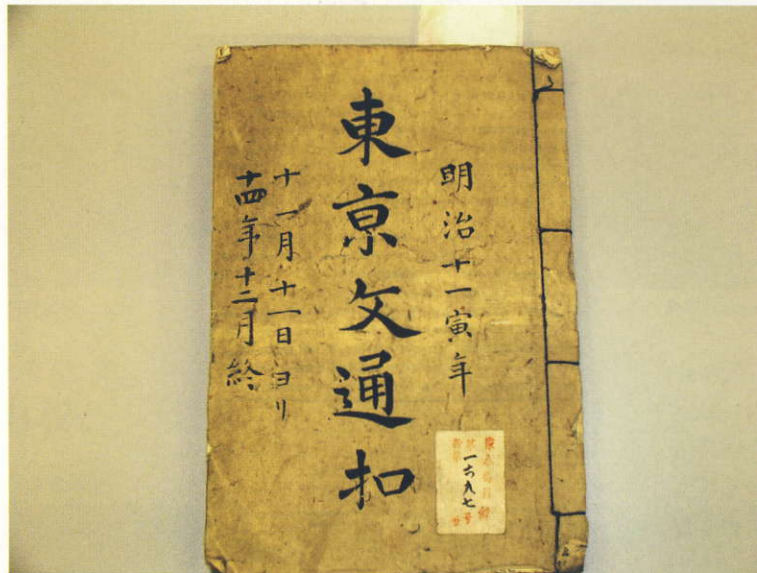 明治十一寅年
東京文通扣
十一月十一日ヨリ
十四年十二月終
一六九七